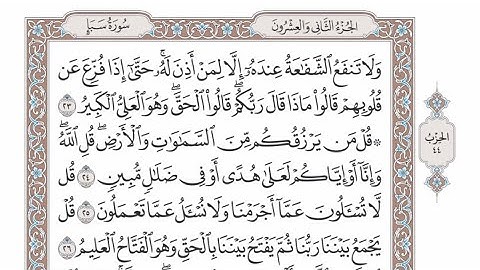 سُورَةُ سَبَإٍ
الجُزْءُ الثَّانِي وَالعِشْرُونَ
وَلَا تَنفَعُ ٱلشَّفَٰعَةُ عِندَهُۥٓ إِلَّا لِمَنْ أَذِنَ لَهُۥۚ حَتَّىٰٓ إِذَا فُزِّعَ عَن
قُلُوبِهِمْ قَالُوا۟ مَاذَا قَالَ رَبُّكُمْۖ قَالُوا۟ ٱلْحَقَّۖ وَهُوَ ٱلْعَلِىُّ ٱلْكَبِيرُ ٢٣
۞ قُلْ مَن يَرْزُقُكُم مِّنَ ٱلسَّمَٰوَٰتِ وَٱلْأَرْضِۖ قُلِ ٱللَّهُۖ
وَإِنَّآ أَوْ إِيَّاكُمْ لَعَلَىٰ هُدًى أَوْ فِى ضَلَٰلٍ مُّبِينٍ ٢٤ قُل
لَّا تُسْـَٔلُونَ عَمَّآ أَجْرَمْنَا وَلَا نُسْـَٔلُ عَمَّا تَعْمَلُونَ ٢٥ قُلْ
يَجْمَعُ بَيْنَنَا رَبُّنَا ثُمَّ يَفْتَحُ بَيْنَنَا بِٱلْحَقِّ وَهُوَ ٱلْفَتَّاحُ ٱلْعَلِيمُ ٢٦
الحِزْبُ
٤٤